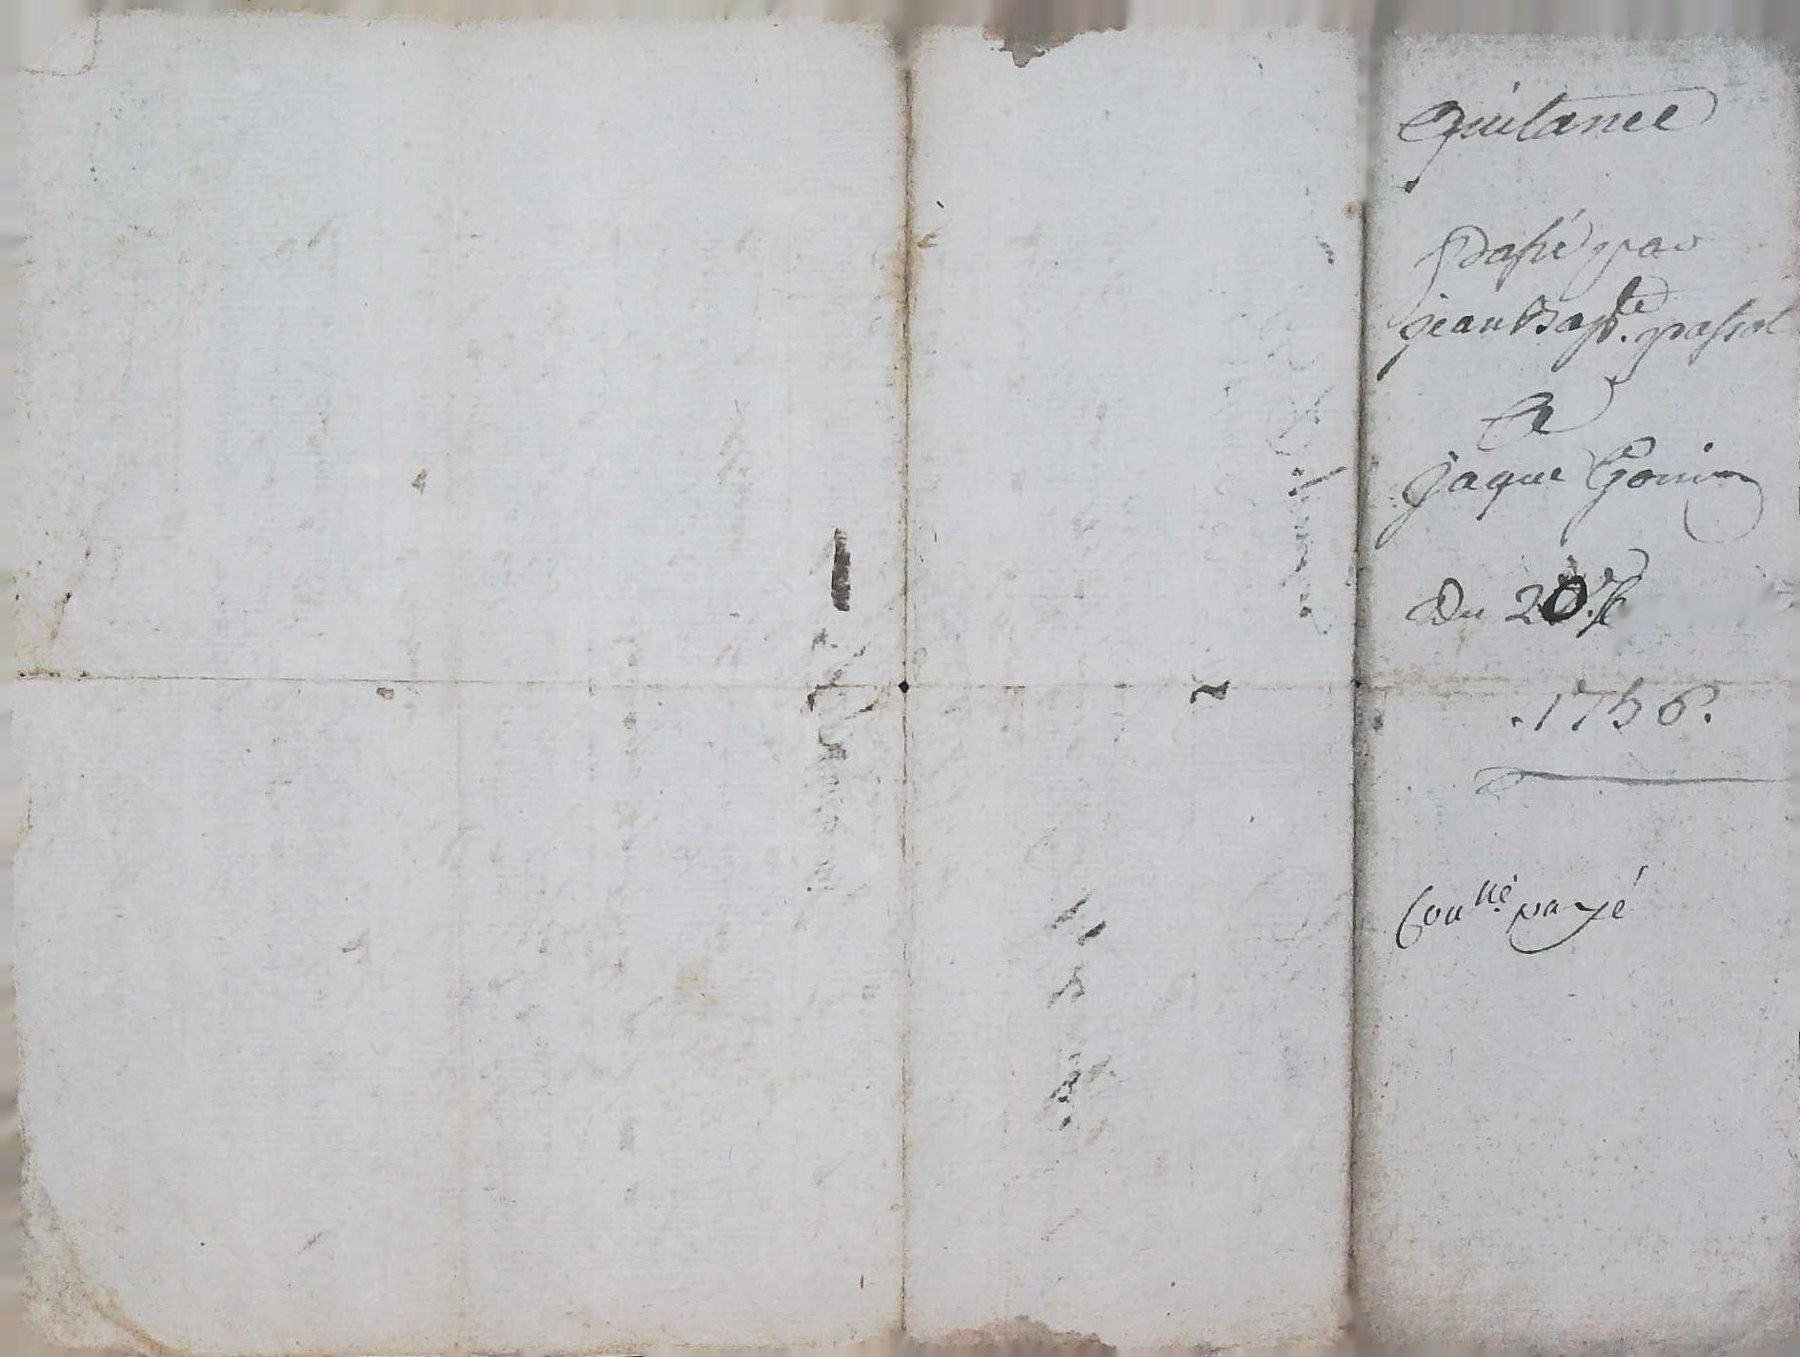 Quitance
passé par
jean Bapte. passot
A
jaque Gonin
Du 20. 7e
.1756.
Conllé payé